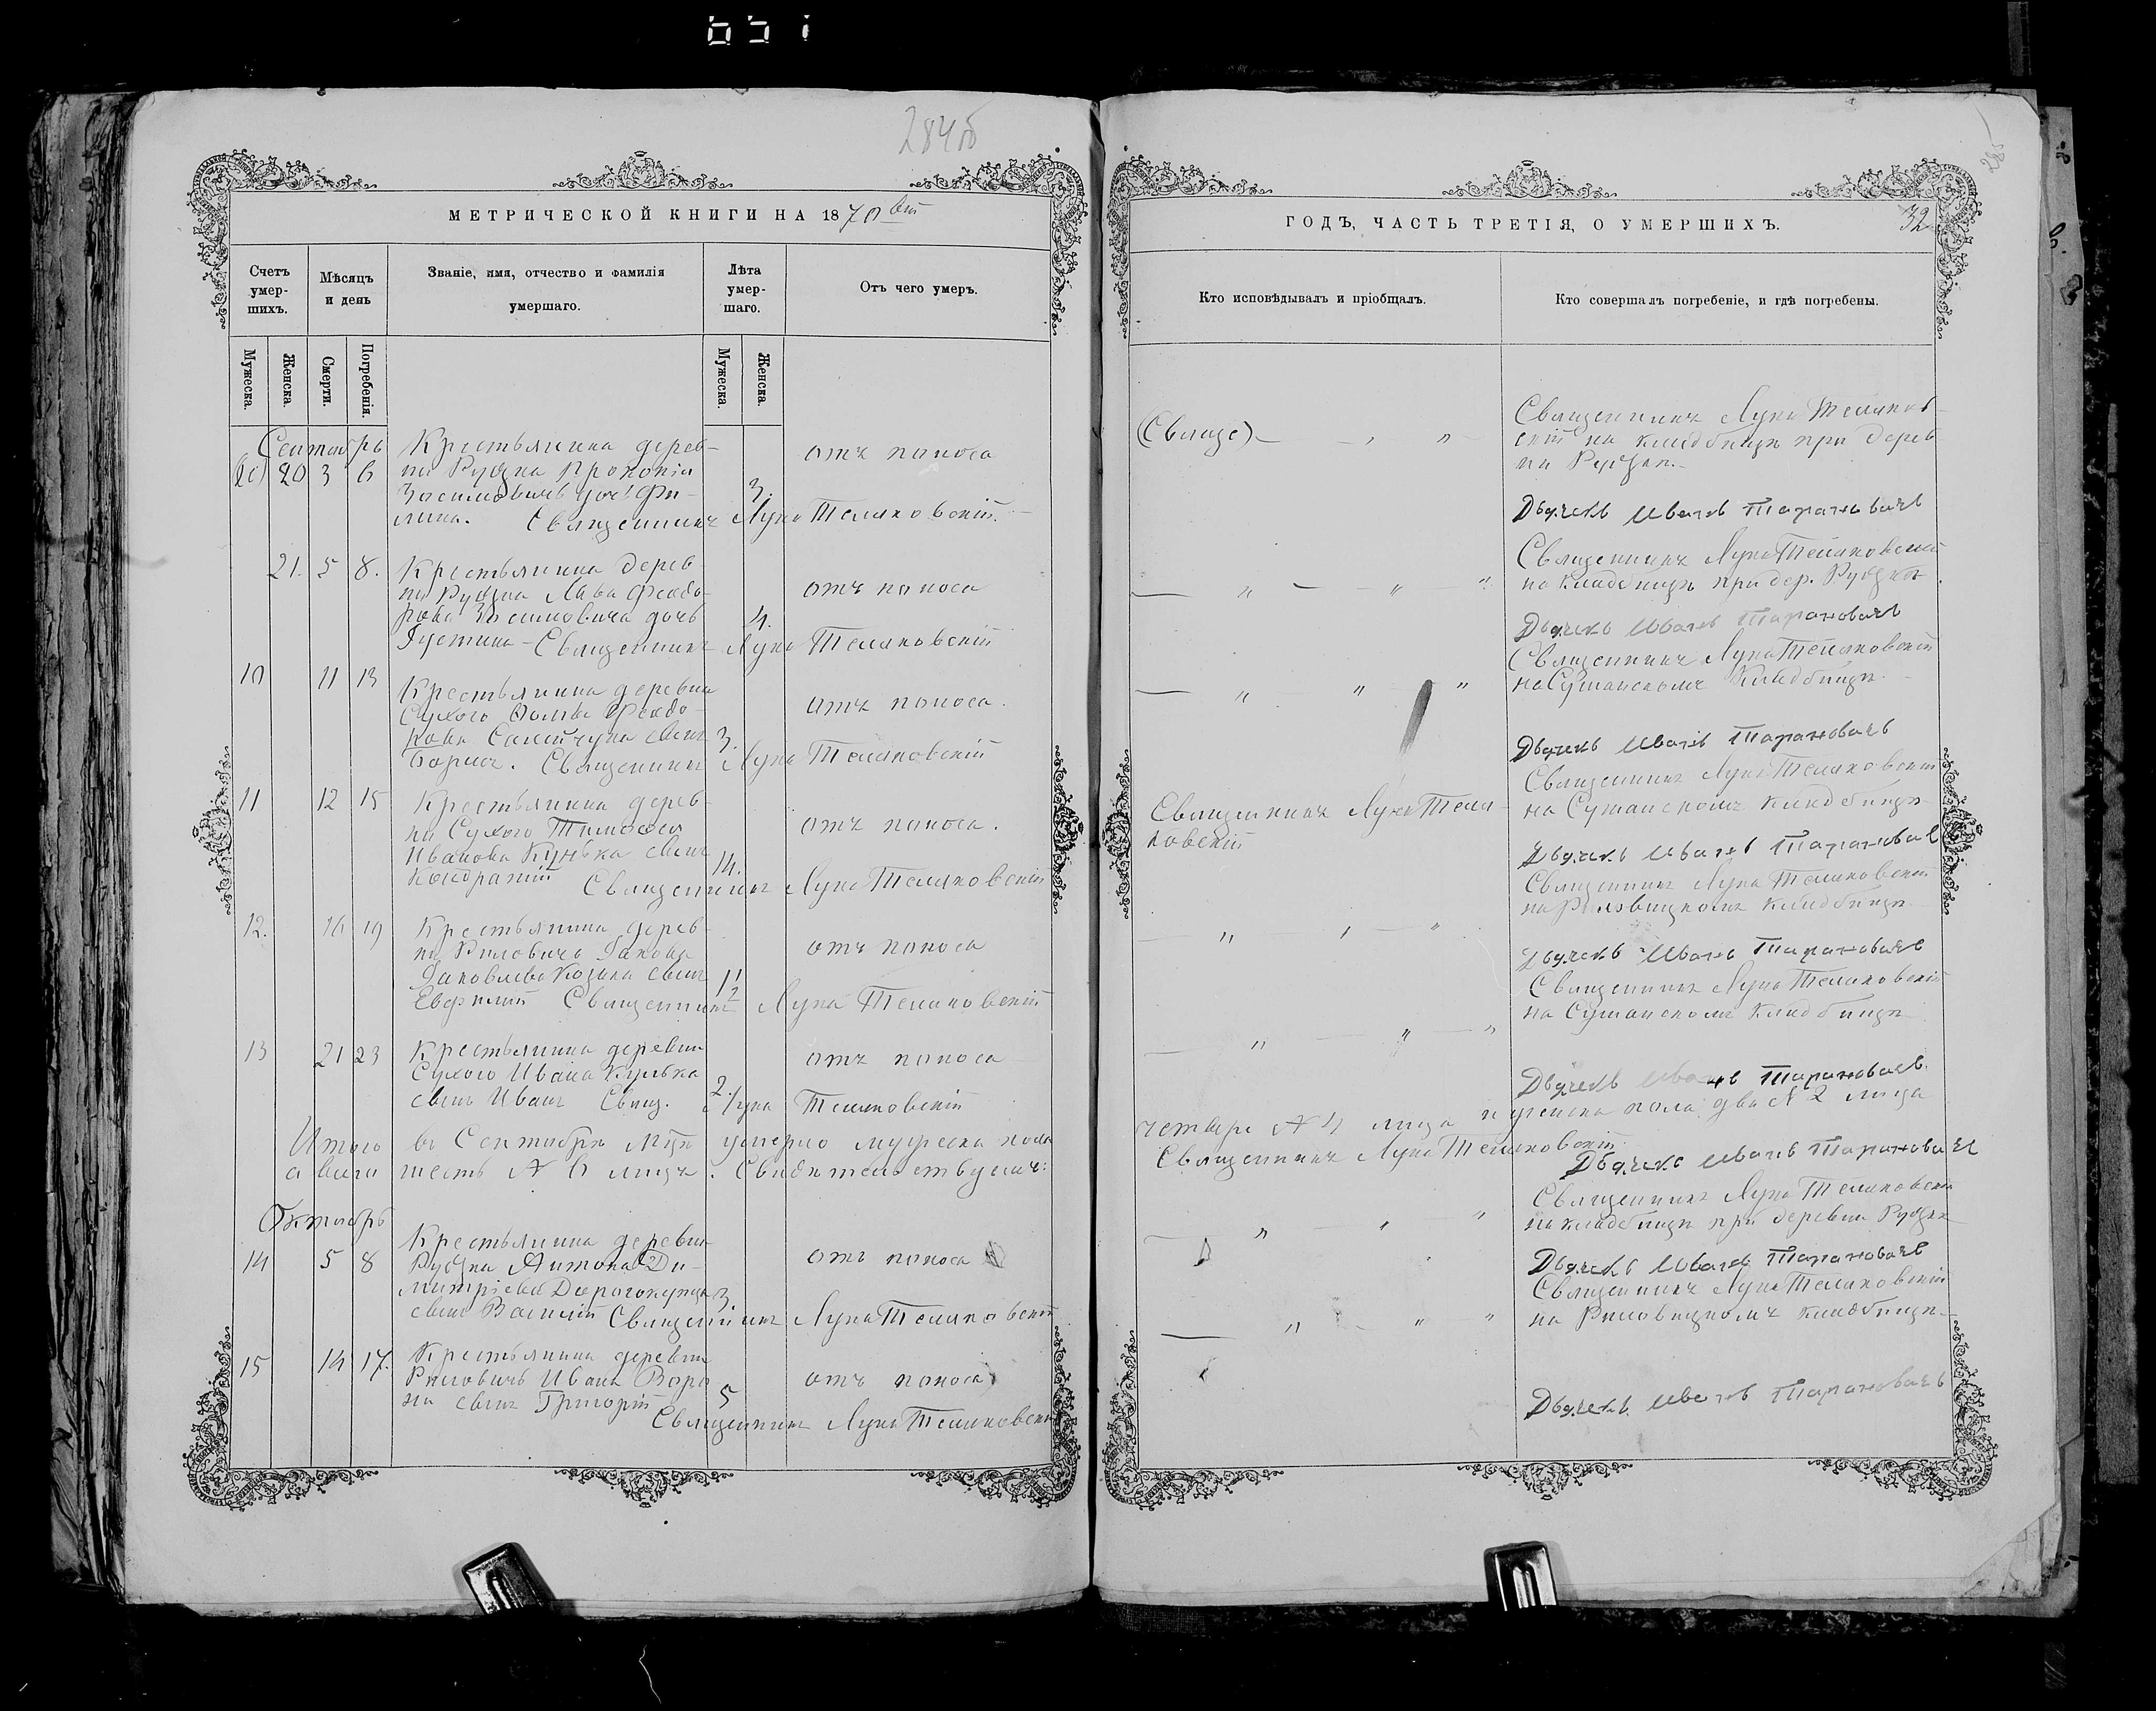 651
284об
МЕТРИЧЕСКОЙ КНИГИ НА 1870 ой
Счетъ умер-шихъ.
Мѣсяцъ и день
Званіе, имя, отчество и фамилія умершаго.
Лѣта умер-шаго.
Отъ чего умеръ.
Мужеска.
Женска.
Смерти.
Погребенія.
Мужеска.
Женска.
Сентябрь
20 3 6
Крестьянина дерев-
ни Прокопія
дочь
Священникъ Лука Теляковскій
3.
отъ поноса
21. 5 8.
Крестьянина дерев
ни Льва Феодо-
рова Зосимовича дочь
Іустина - Священникъ Лука Теляковскій
4.
отъ поноса
10 11 13
Крестьянина деревни
Сухого Феодо-
рова сынъ
Борисъ. Священникъ Лука Теляковскій
3.
отъ поноса.
11 12 15
Крестьянина дерев
ни Сухого Тимофея
Иванова Кунька сынъ
Кондратій Священникъ Лука Теляковскій
14.
отъ поноса.
12. 16 19
Крестьянина дерев
ни Риловичъ Іакова
Іаковлева сынъ
Священникъ Лука Теляковскій
отъ поноса
13 21 23
Крестьянина деревни
Сухого Ивана Кунька
сынъ Иванъ Свящ. Лука Теляковскій
2.
отъ поноса
Итого въ Сентябрѣ мцѣ умерло мужеска пола
а всего шесть № 6 лицъ. Свидѣтельствуемъ:
Октябрь
14 5 8
Крестьянина деревни
Антона Ди-
митріева
сынъ Василій Священникъ Лука Теляковскій
3.
отъ поноса
15 14 17.
Крестьянина деревни
Риловичъ Ивана Воро
на сынъ Григорій
Священникъ Лука Теляковскій
5
отъ поноса
285
32
ГОДЪ, ЧАСТЬ ТРЕТІЯ, О УМЕРШИХЪ.
Кто исповѣдывалъ и пріобщалъ.
Кто совершалъ погребеніе, и гдѣ погребены.
Священникъ Лука Теляков-
скій на кладбищѣ при дерев
Дьячекъ Иванъ Тарановичъ
Священникъ Лука Теляковскій
на кладбищѣ при дер.
Дьячекъ Иванъ Тарановичъ
Священникъ Лука Теляковскій
на кладбищѣ.
Дьячекъ Иванъ Тарановичъ
Священникъ Лука Теля-
ковскій
Священникъ Лука Теляковскій
на кладбищѣ
Дьячекъ Иванъ Тарановичъ
Священникъ Лука Теляковскій
на Риловицкомъ кладбищѣ
Дьячекъ Иванъ Тарановичъ
Священникъ Лука Теляковскій
на кладбищѣ
Дьячекъ Иванъ Тарановичъ
четыре № 4 лица и женска пола два № 2 лица
Священникъ Лука Теляковскій
Дьячекъ Иванъ Тарановичъ
Священникъ Лука Теляковскій
на кладбищѣ при деревни
Дьячекъ Иванъ Тарановичъ
Священникъ Лука Теляковскій
на Риловицкомъ кладбищѣ
Дьячекъ Иванъ Тарановичъ